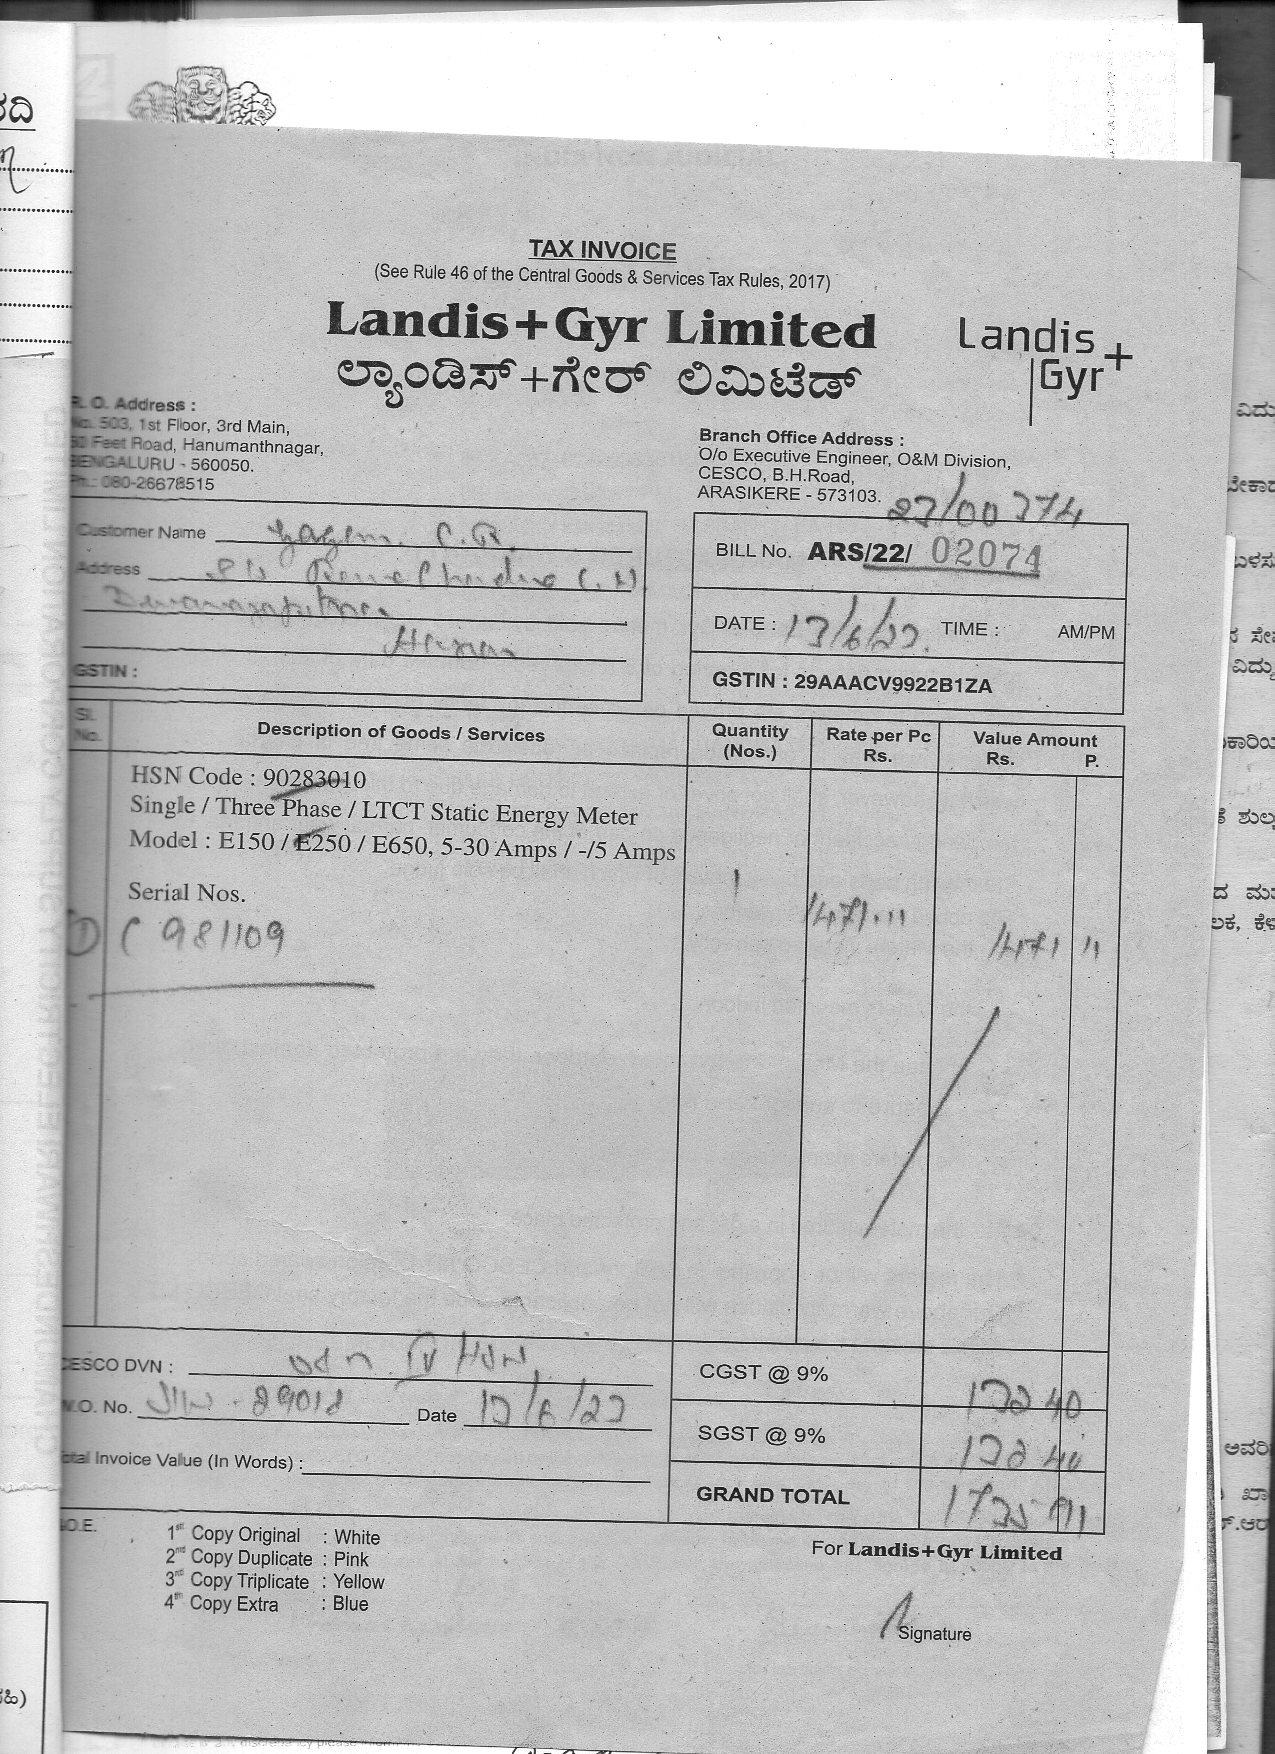 TAX INVOICE
(See Rule 46 of the Central Goods & Services Tax Rules, 2017)
Landis+Gyr Limited
ಲ್ಯಾಂಡಿಸ್+ಗೇರ್ ಲಿಮಿಟೆಡ್
Landis+
Gyr
R. O. Address :
No. 503, 1st Floor, 3rd Main,
50 Feet Road, Hanumanthnagar,
BENGALURU - 560050.
Ph.: 080-26678515
Branch Office Address :
O/o Executive Engineer, O&M Division,
CESCO, B.H.Road,
ARASIKERE - 573103.
23/00274
Customer Name C.R.
Address
GSTIN :
BILL No. ARS/22/ 02074
DATE : 13/6/23. TIME : AM/PM
GSTIN : 29AAACV9922B1ZA
Sl. No. Description of Goods / Services Quantity (Nos.) Rate per Pc Rs. Value Amount Rs. P.
HSN Code : 90283010
Single / Three Phase / LTCT Static Energy Meter
Model : E150 / E250 / E650, 5-30 Amps / -/5 Amps
Serial Nos.
1 1471.11 1471 11
① C 981109
CESCO DVN : HSN
W.O. No. 29018 Date 13/6/23
Total Invoice Value (In Words) :
CGST @ 9% 132 40
SGST @ 9% 132 40
GRAND TOTAL 1735 91
E.&O.E.
1st Copy Original : White
2nd Copy Duplicate : Pink
3rd Copy Triplicate : Yellow
4th Copy Extra : Blue
For Landis+Gyr Limited
Signature